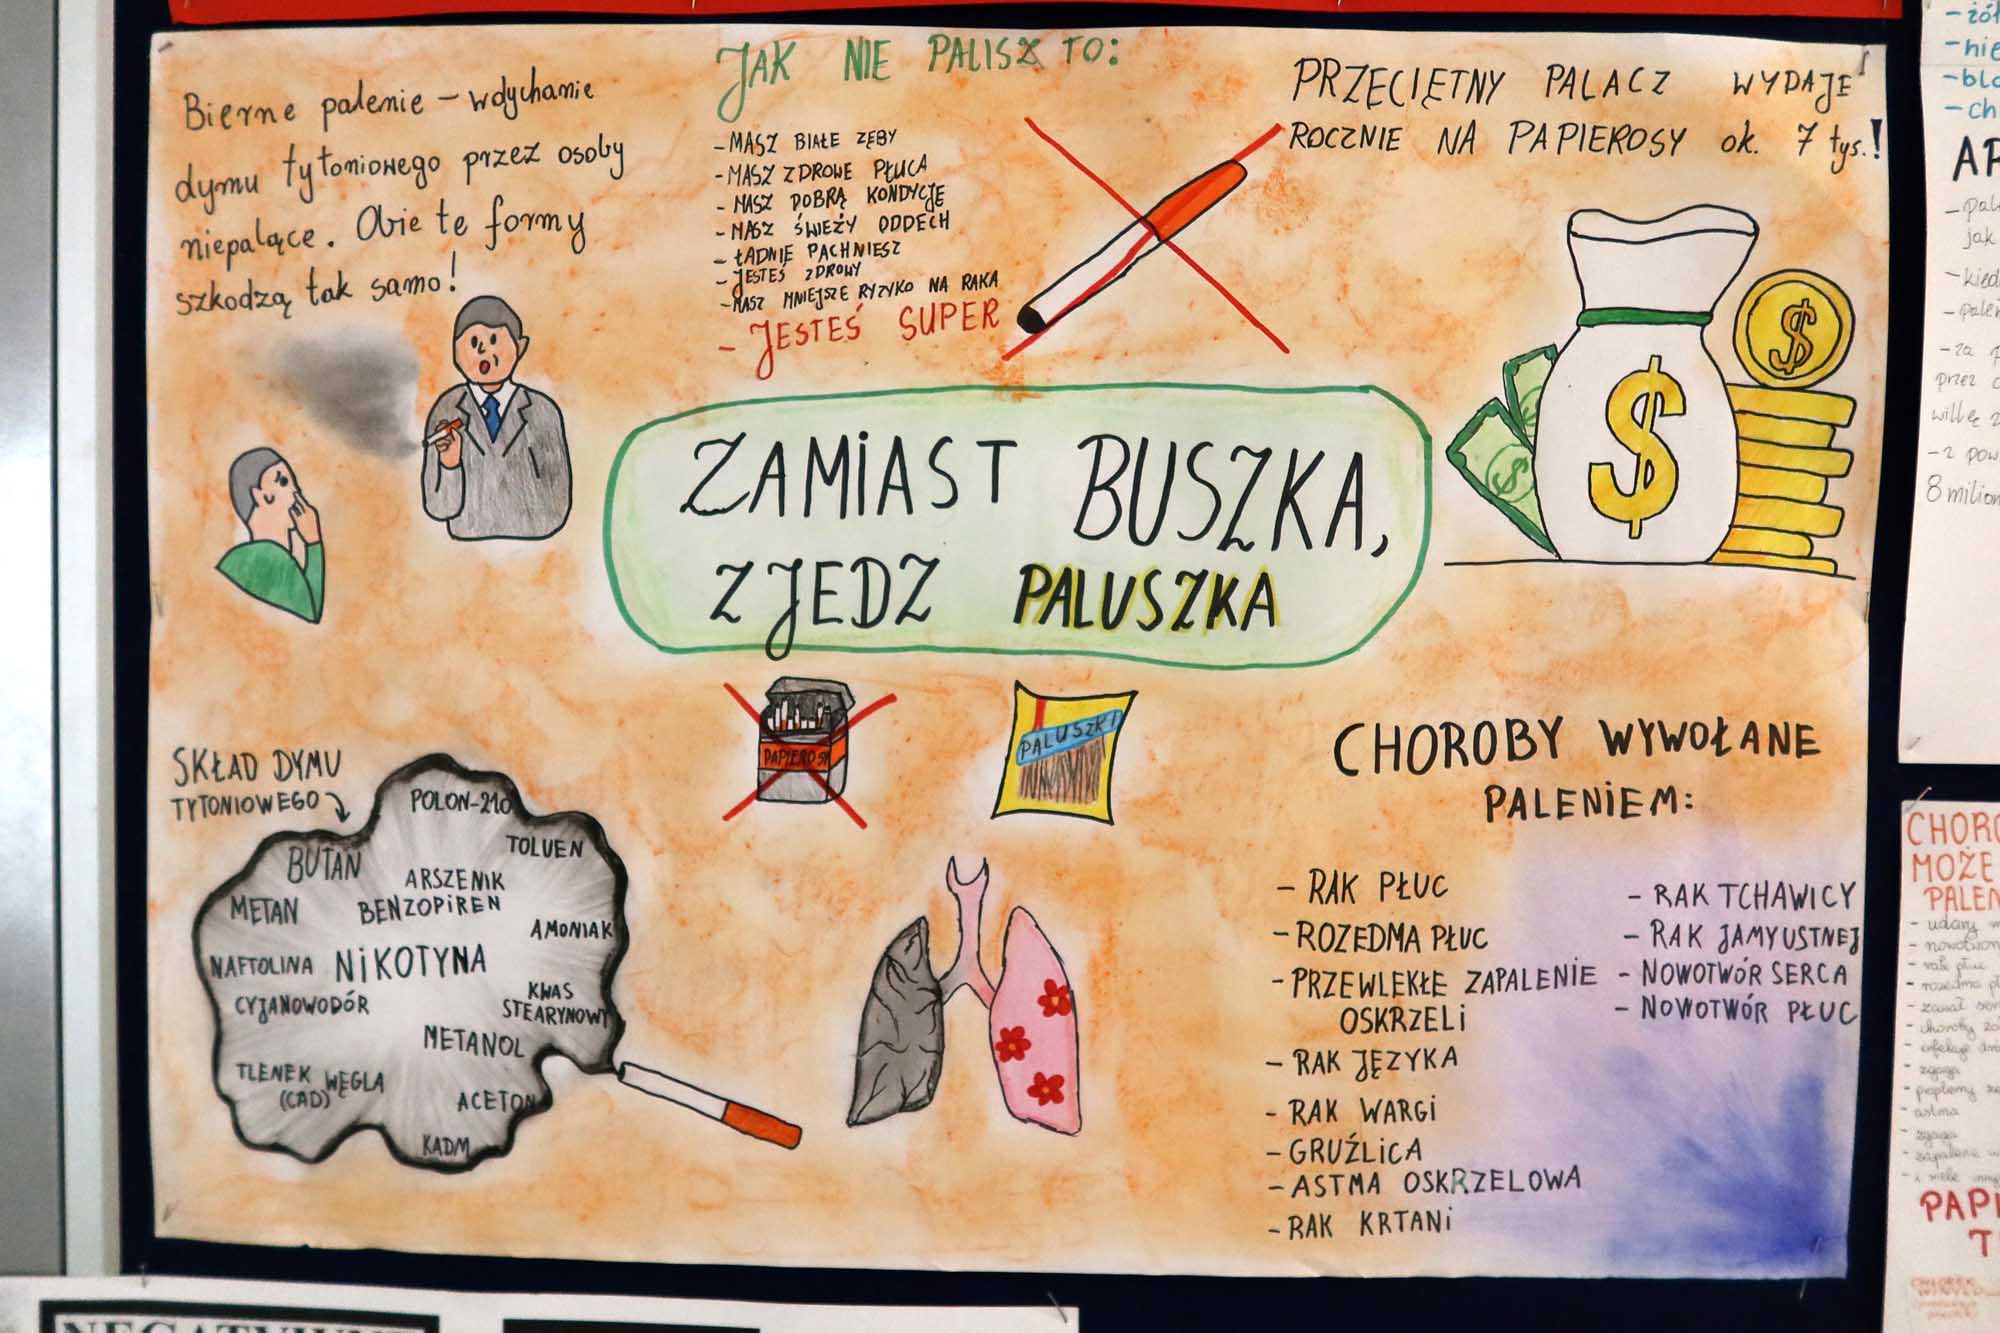 Bierne palenie – wdychanie
dymu tytoniowego przez osoby
niepalące. Obie te formy
szkodzą tak samo!
JAK NIE PALISZ TO:
- MASZ BIAŁE ZĘBY
- MASZ ZDROWE PŁUCA
- MASZ DOBRĄ KONDYCJĘ
- MASZ ŚWIEŻY ODDECH
- ŁADNIE PACHNIESZ
- JESTEŚ ZDROWY
- MASZ MNIEJSZE RYZYKO NA RAKA
- JESTEŚ SUPER
PRZECIĘTNY PALACZ WYDAJE
ROCZNIE NA PAPIEROSY ok. 7 tys.!
$
$
$
ZAMIAST BUSZKA,
ZJEDZ PALUSZKA
PAPIEROSY
PALUSZKI
SKŁAD DYMU
TYTONIOWEGO
POLON-210
TOLUEN
BUTAN
ARSZENIK
METAN
BENZOPIREN
AMONIAK
NAFTOLINA
NIKOTYNA
CYJANOWODÓR
KWAS
STEARYNOWY
METANOL
TLENEK WĘGLA
(CAD)
ACETON
KADM
CHOROBY WYWOŁANE
PALENIEM:
- RAK PŁUC
- ROZEDMA PŁUC
- PRZEWLEKŁE ZAPALENIE
OSKRZELI
- RAK JĘZYKA
- RAK WARGI
- GRUŹLICA
- ASTMA OSKRZELOWA
- RAK KRTANI
- RAK TCHAWICY
- RAK JAMY USTNEJ
- NOWOTWÓR SERCA
- NOWOTWÓR PŁUC
- żół
- nie
- ch
AP
jak
- za
przez
- z pow
8 milion
CHORO
MOŻE
PALEN
- astma
- zgaga
PAPI
T